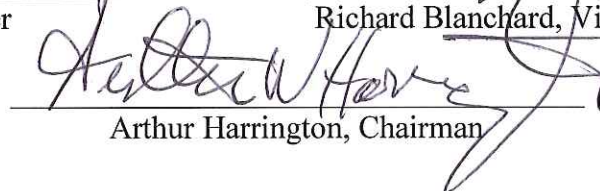 r Richard Blanchard, Vi
Arthur W Harrington
Arthur Harrington, Chairman